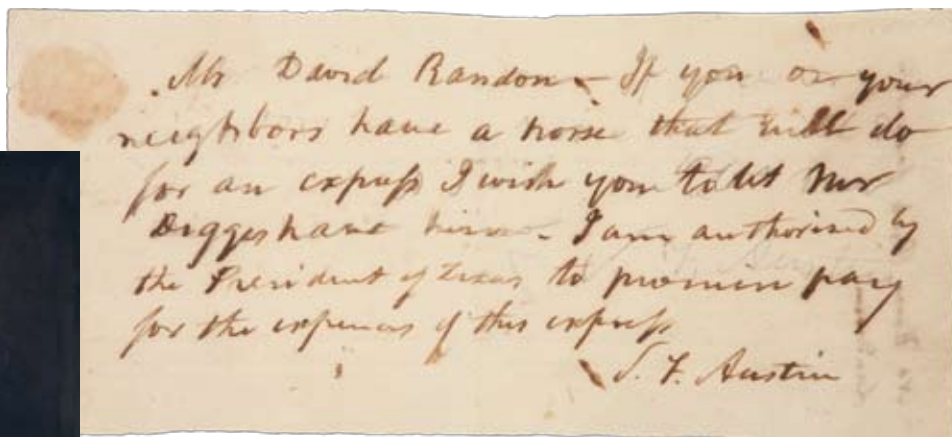 Mr David Randon - If you or your
neighbors have a horse that will do
for an express I wish you to let Mr
Digges have him - I am authorised by
the President of Texas to promise pay
for the expenses of this express
S. F. Austin